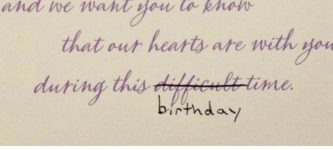 and we want you to know
that our hearts are with you
during this difficult time.
birthday